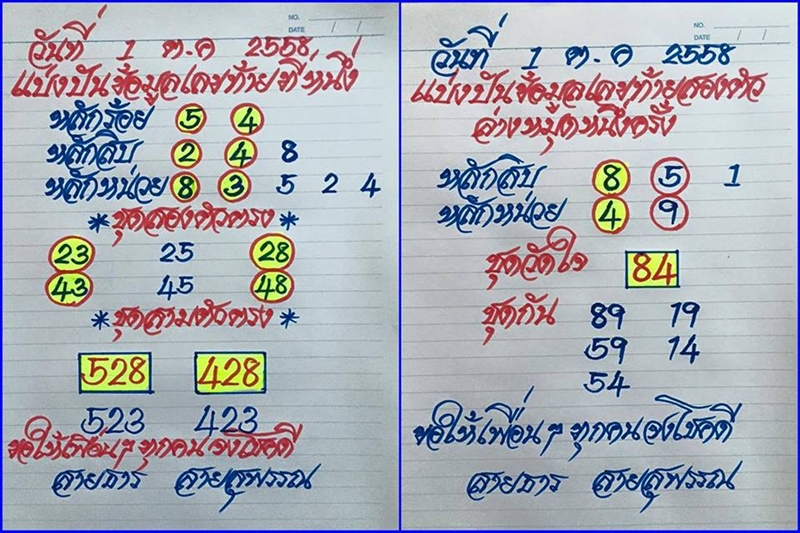 NO.
DATE / /
วันที่ 1 ต.ค 2558
แบ่งปันข้อมูลเลขท้ายที่หนึ่ง
หลักร้อย 5 4
หลักสิบ 2 4 8
หลักหน่วย 8 3 5 2 4
*ชุดสองตัวตรง*
23 25 28
43 45 48
*ชุดสามตัวตรง*
528 428
523 423
ขอให้เพื่อนๆ ทุกคน จงโชคดี
สายธาร สายสุพรรณ
NO.
DATE / /
วันที่ 1 ต.ค 2558
แบ่งปันข้อมูลเลขท้ายสองตัว
ล่างหมุดหนึ่งครั้ง
หลักสิบ 8 5 1
หลักหน่วย 4 9
ชุดวัดใจ 84
ชุดกัน 89 19
59 14
54
ขอให้เพื่อนๆ ทุกคน จงโชคดี
สายธาร สายสุพรรณ